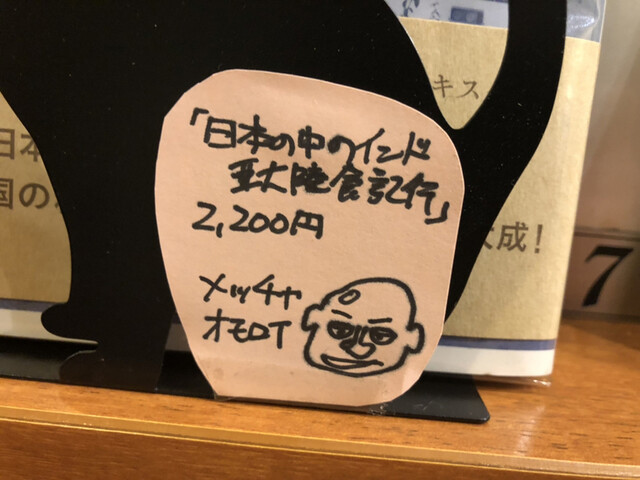 「日本の中のインド
亜大陸食記行」
2,200円
メッチャ
オモロイ
キス
日本
国の
大成！
7